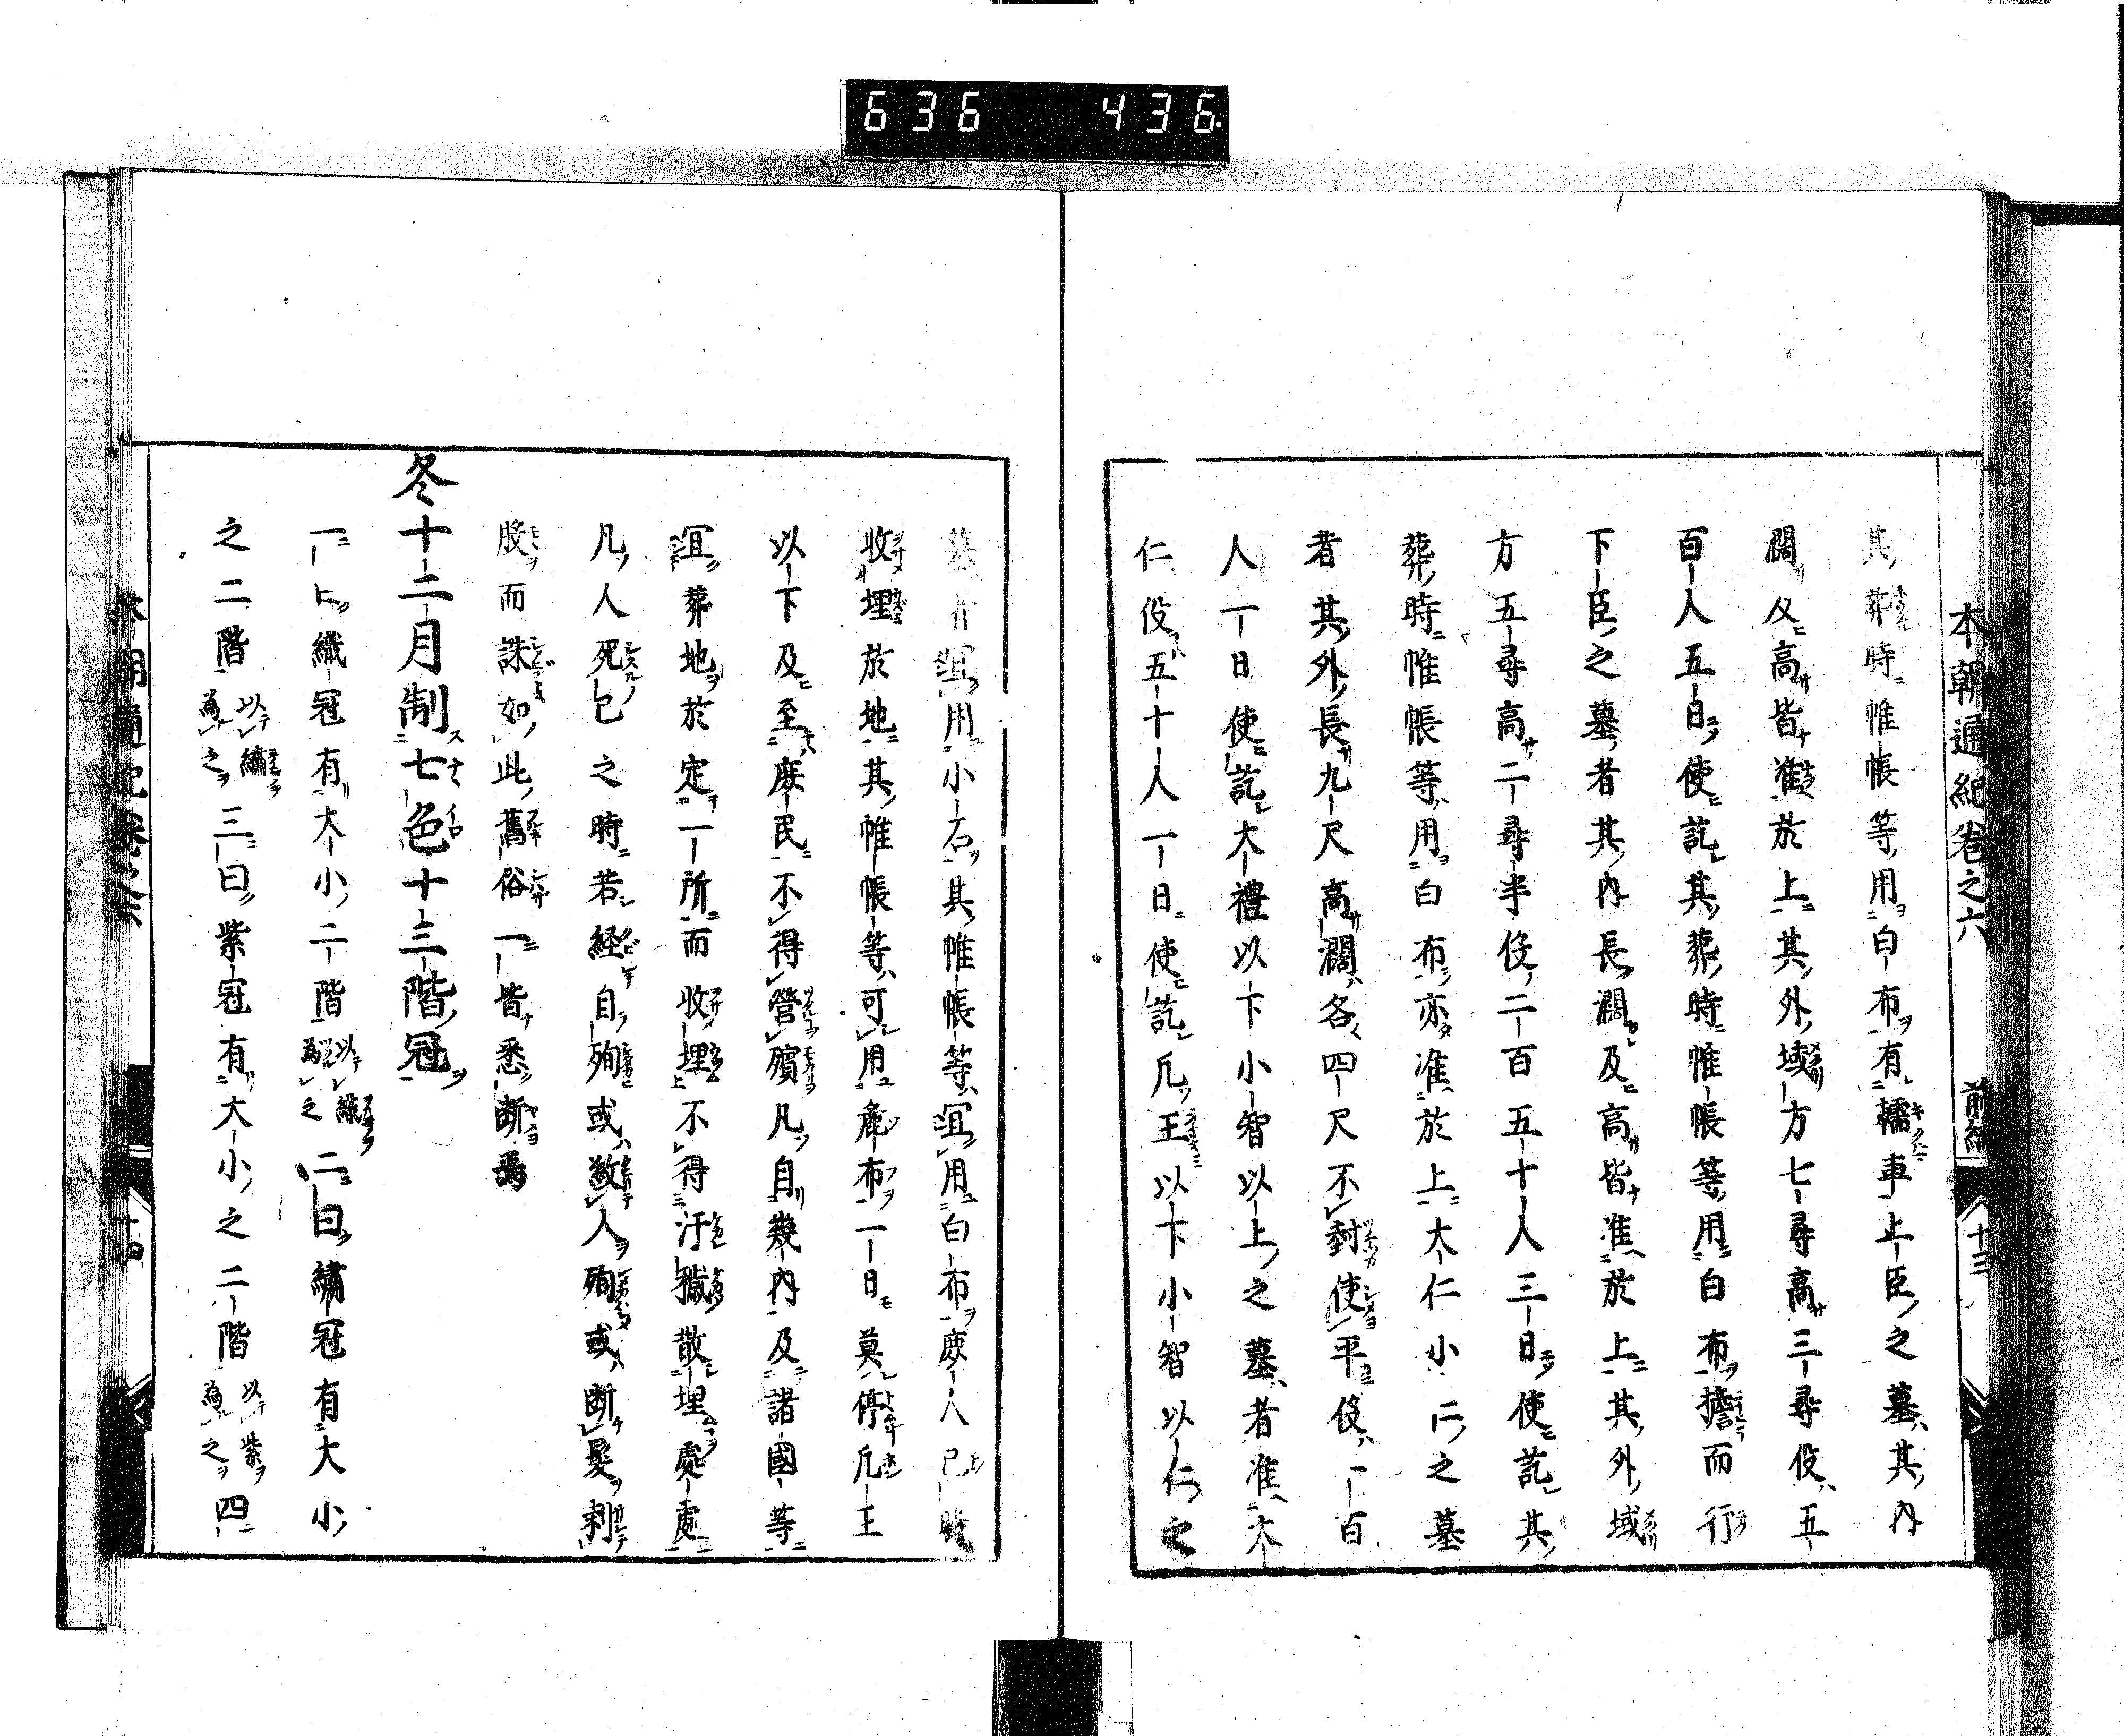 636 436
本朝通紀卷之六 前編 十三
其葬時帷帳等用白布有轜車上臣之墓其內
濶及高皆准於上其外域方七尋高三尋役五
百人五日使訖其葬時帷帳等用白布擔而行
下臣之墓者其內長濶及高皆准於上其外域
方五尋高二尋半役二百五十人三日使訖其
葬時帷帳等用白布亦准於上大仁小仁之墓
者其外長九尺高濶各四尺不封使平役一百
人一日使訖大禮以下小智以上之墓者准大
仁役五十人一日使訖凡王以下小智以仁之
墓者宜用小石其帷帳等宜用白布庶人已
收埋於地其帷帳等可用麁布一日莫停凡王
以下及至庶民不得營殯凡自幾內及諸國等
宜葬地於定一所而收埋不得汙穢散埋處處
凡人死已之時若経自殉或敎人殉或断髮刺
股而誄如此舊俗一皆悉断焉
冬十二月制七色十三階冠
一上織冠有大小二階以織為之二曰繡冠有大小
之二階以繡為之三曰紫冠有大小之二階以紫為之四
十四